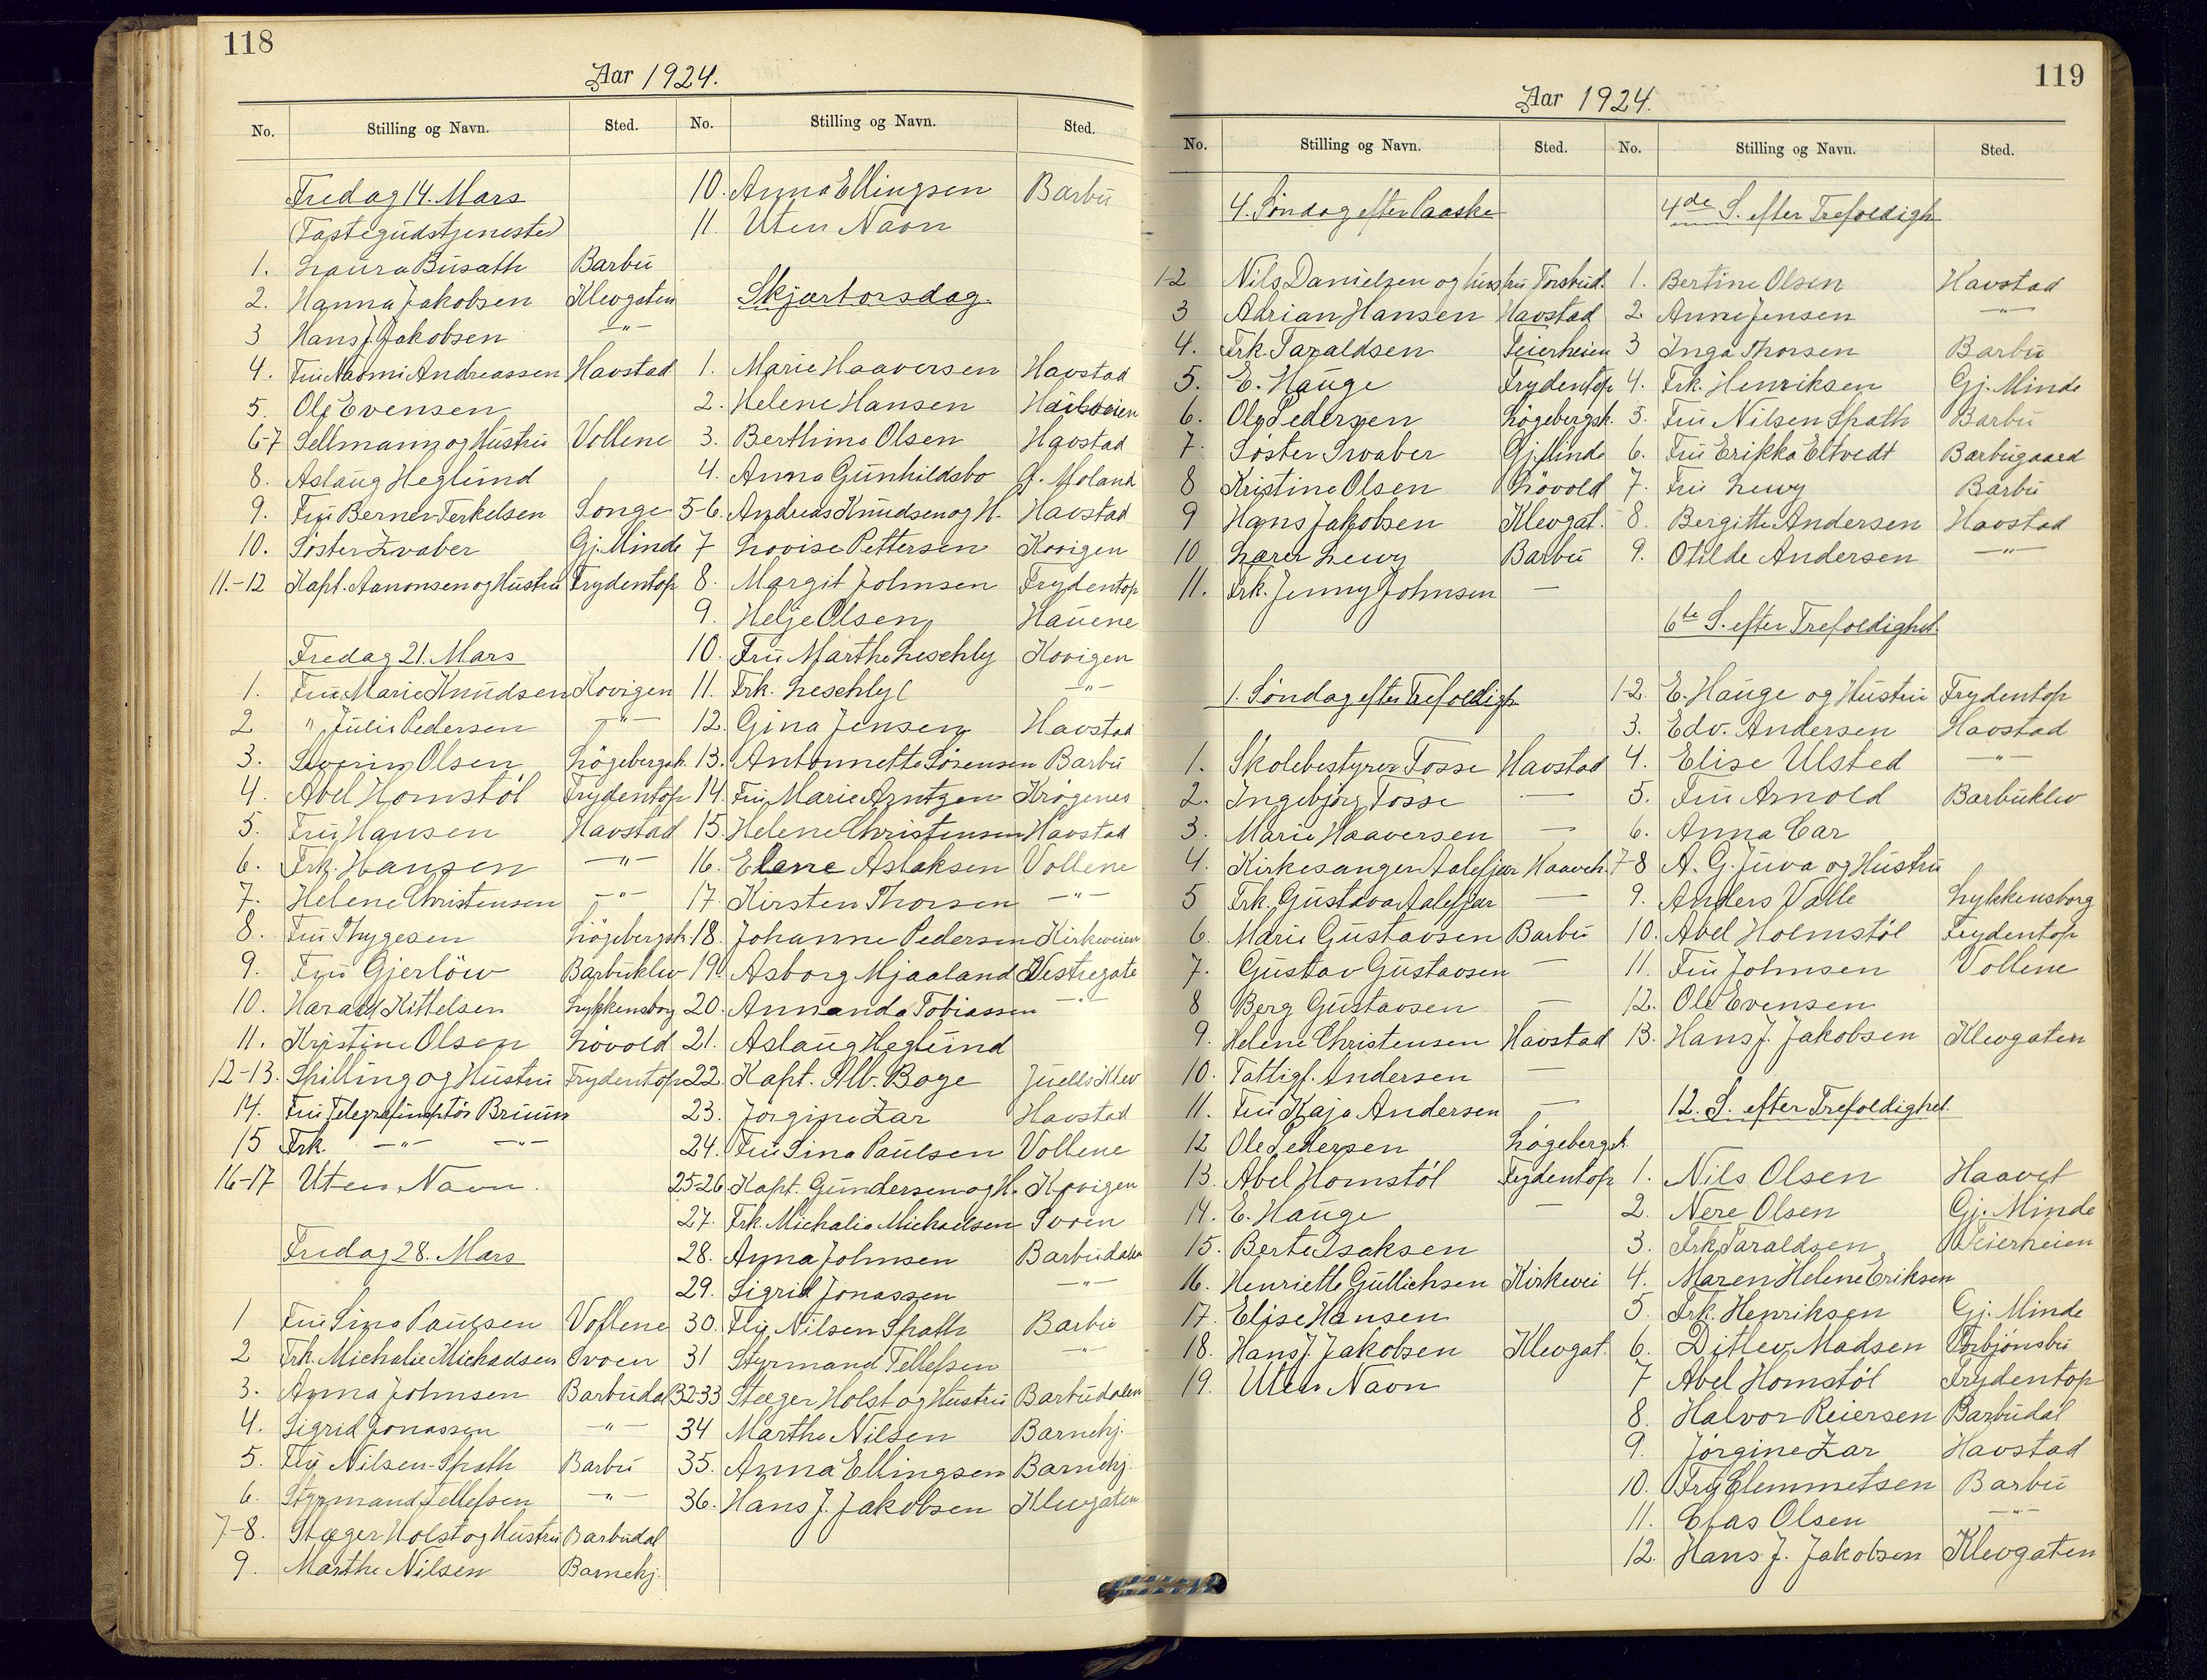 118
Aar 1924.
No. Stilling og Navn. Sted.
Fredag 14. Mars
(Fastegudstjeneste)
1. Laura Busath Barbu
2. Hanna Jakobsen Klevgaten
3 Hans J. Jakobsen —"—
4. Fru Naomi Andreassen Havstad
5. Ole Evensen
6-7 Sellmann og Hustru Vollene
8. Aslaug Heglund
9. Fru Berner Terkelsen Songe
10. Söster Svaber Gj. Minde
11.-12 Kapt. Aanonsen og Hustru Frydentop
Fredag 21. Mars
1. Fru Marie Knudsen Kovigen
2 " Julie Pedersen —"—
3. Severin Olsen Lögebergsk.
4. Abel Homstöl Frydentop
5. Fru Hansen Havstad
6. Frk. Hansen —"—
7. Helene Christensen —"—
8. Fru Thygesen Lögebergsk.
9. Fru Gjerlöw Barbuklev
10. Harald Kittelsen Lykkensborg
11. Kristine Olsen Lövold
12-13. Spilling og Hustru Frydentop
14. Fru Telegrafinsptör Bruun
15 Frk. —"— —"—
16-17 Uten Navn.
Fredag 28. Mars
1 Fru Sina Paulsen Vollene
2 Frk. Michalie Michaelsen Svoen
3. Anna Johnsen Barbudal
4. Sigrid Jonassen —"—
5. Fru Nilsen-Spath Barbu
6. Styrmand Tellefsen —"—
7-8. Stæger Holst og Hustru Barbudal
9. Marthe Nilsen Barnehj.
No. Stilling og Navn. Sted.
10. Anna Ellingsen Barbu
11. Uten Navn
Skjærtorsdag.
1. Marie Haaversen Havstad
2. Helene Hansen
3. Berthine Olsen Havstad
4. Anna Gunhildsbo Ø. Moland
5-6. Andreas Knudsen og H. Havstad
7 Lovise Pettersen Kovigen
8. Margit Johnsen Frydentop
9. Helje Olsen Hauene
10. Fru Marthe Leschly Kovigen
11. Frk. Leschly —"—
12. Gina Jensen Havstad
13. Antonnette Sörensen Barbu
14. Fru Marie Arntzen Krögenes
15. Helene Christensen Havstad
16. Elene Aslaksen Vollene
17. Kirsten Thorsen —"—
18. Johanne Pedersen Kirkeveien
19. Asborg Mjaaland Vestregate
20. Annanda Tobiassen —"—
21. Aslaug Heglund
22. Kapt. Alb. Boye Juells Klev
23. Jörgine Zar Havstad
24. Fru Sina Paulsen Vollene
25-26. Kapt. Gundersen og H. Kovigen
27. Frk. Michalie Michaelsen Svoen
28. Anna Johnsen Barbudalen
29. Sigrid Jonassen —"—
30. Fru Nilsen Spath Barbu
31 Styrmand Tellefsen —"—
32-33 Stæger Holst og Hustru Barbudalen
34 Marthe Nilsen Barnehj.
35. Anna Ellingsen Barnehj.
36. Hans J. Jakobsen Klevgaten
119
Aar 1924.
No. Stilling og Navn. Sted.
4. Söndag efter Paaske
1-2 Nils Danielsen og hustru Torsbud.
3 Adrian Hansen Havstad
4. Frk. Taraldsen Teierheien
5. E. Hauge Frydentop
6. Ole Pedersen Lögebergsk.
7. Söster Svaber Gj. Minde
8 Kristine Olsen Lövold
9 Hans Jakobsen Klevgat.
10 Lærer Lewy Barbu
11. Frk. Jenny Johnsen —
1. Söndag efter Trefoldigh
1. Skolebestyrer Fosse Havstad
2. Ingebjörg Fosse —
3. Marie Haaversen —
4. Kirkesanger Aalefjær Haaveh.
5 Frk. Gustava Aalefjær —
6. Marie Gustavsen Barbu
7. Gustav Gustavsen —
8 Berg Gustavsen —
9. Helene Christensen Havstad
10. Fattigf. Andersen —
11. Fru Kaja Andersen —
12 Ole Pedersen Lögebergsk.
13. Abel Homstöl Frydentop
14. E. Hauge —
15. Berte Isaksen
16. Henriette Gullichsen Kirkevei
17. Elise Hansen
18. Hans J. Jakobsen Klevgat.
19. Uten Navn
No. Stilling og Navn. Sted.
4de S. efter Trefoldigh
1. Bertine Olsen Havstad
2 Anne Jensen —"—
3 Inga Thorsen Barbu
4. Frk. Henriksen Gj. Minde
5. Fru Nilsen Spath Barbu
6. Fru Erikka Eltvedt Barbugaard
7. Fru Lewy Barbu
8. Bergitte Andersen Havstad
9. Otilde Andersen —"—
6te S. efter Trefoldighet.
1-2. E. Hauge og Hustru Frydentop
3. Edv. Andersen Havstad
4. Elise Ulsted —"—
5. Fru Arnold Barbuklev
6. Anna Car
7-8 A. G. Juva og Hustru
9. Anders Valle Lykkensborg
10. Abel Holmstöl Frydentop
11. Fru Johnsen Vollene
12. Ole Evensen
13. Hans J. Jakobsen Klevgaten
12. S. efter Trefoldighet.
1. Nils Olsen Haavet
2. Nere Olsen Gj. Minde
3. Frk Taraldsen Teierheien
4. Maren Helene Eriksen
5. Frk. Henriksen Gj. Minde
6. Ditlev Madsen Torbjönsbu
7 Abel Homstöl Frydentop
8. Halvor Reiersen Barbudal
9. Jörgine Zar Havstad
10. Fru Clemmetsen Barbu
11. Clas Olsen —"—
12. Hans J. Jakobsen Klevgaten